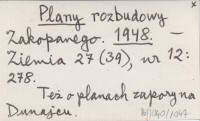 Plany rozbudowy
Zakopanego. 1948. —
Ziemia 27 (39), nr 12:
278.
Też o planach zapory na
Dunajcu.